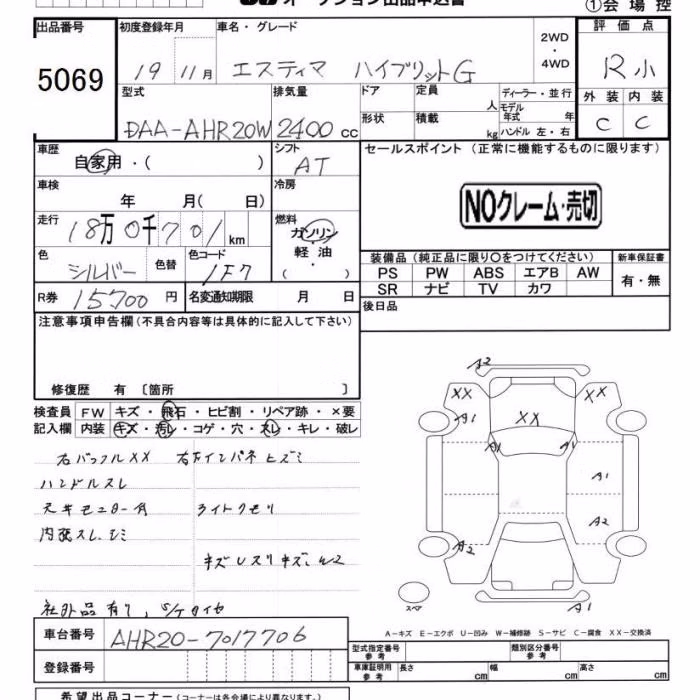 オークション出品申込書
①会場控
出品番号 初度登録年月 車名・グレード 2WD・4WD 評価点
5069 19 11月 エスティマ ハイブリットG R小
型式 排気量 ドア 定員 人 ディーラー・並行 外装 内装
DAA-AHR20W 2400cc 形状 積載 kg モデル年式 年 C C
ハンドル 左・右
車歴 シフト セールスポイント (正常に機能するものに限ります)
自家用・( ) AT
車検 冷房
年 月( 日) NOクレーム・売切
走行 燃料
18万0千701km ガソリン
軽油
・( )
色 色替 色コード 装備品 (純正品に限り〇をつけてください) 新車保証書
シルバー 1F7 PS PW ABS エアB AW 有・無
SR ナビ TV カワ
R券 15700円 名変通知期限 月 日 後日品
注意事項申告欄(不具合内容等は具体的に記入して下さい)
修復歴 有 〔箇所 〕
検査員 FW キズ・飛石・ヒビ割・リペア跡・×要
記入欄 内装 キズ・汚レ・コゲ・穴・スレ・キレ・破レ
右バッフルXX
ハンドルスレ
ライトクモリ
社外品有り、S/Kタイヤ
A2
XX XX
A1 XX
A1 A1
A1
A2
A2
スペア A1
A-キズ E-エクボ U-凹み W-補修跡 S-サビ C-腐食 XX-交換済
車台番号 AHR20-7017706
型式指定番号 参考 類別区分番号 参考
登録番号 車庫証明用 参考 長さ cm 幅 cm 高さ cm
希望出品コーナー (コーナーは各会場により異なります。)